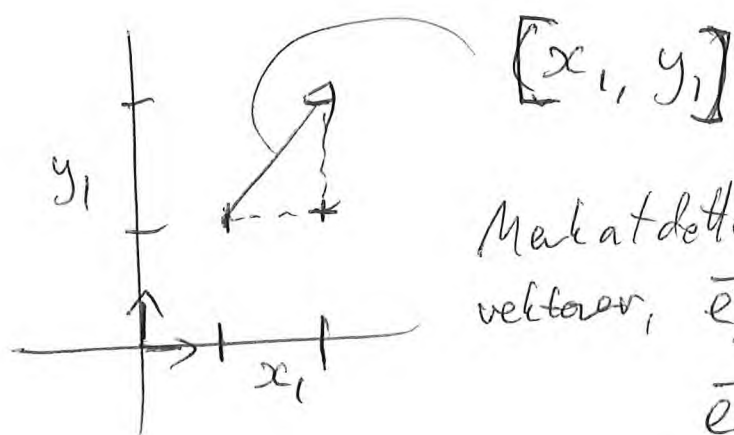 [x₁, y₁]
y₁
Merk at dette
vektorer, e̅
x₁
e̅